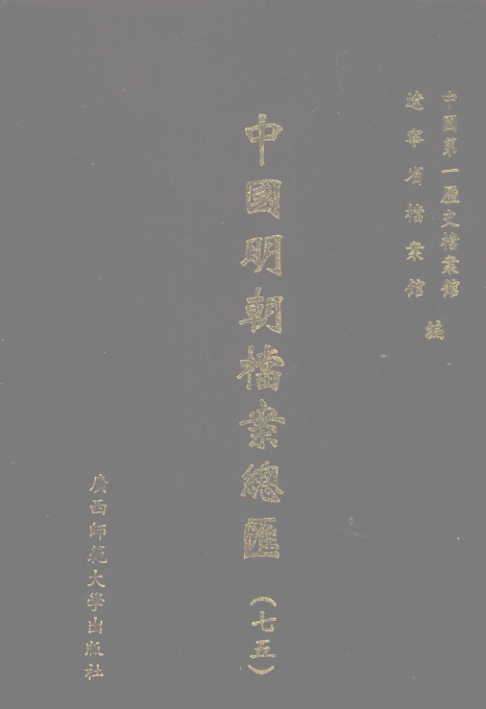 中國第一歷史檔案館
遼寧省檔案館
編
中國明朝檔案總匯
(七五)
廣西師範大學出版社